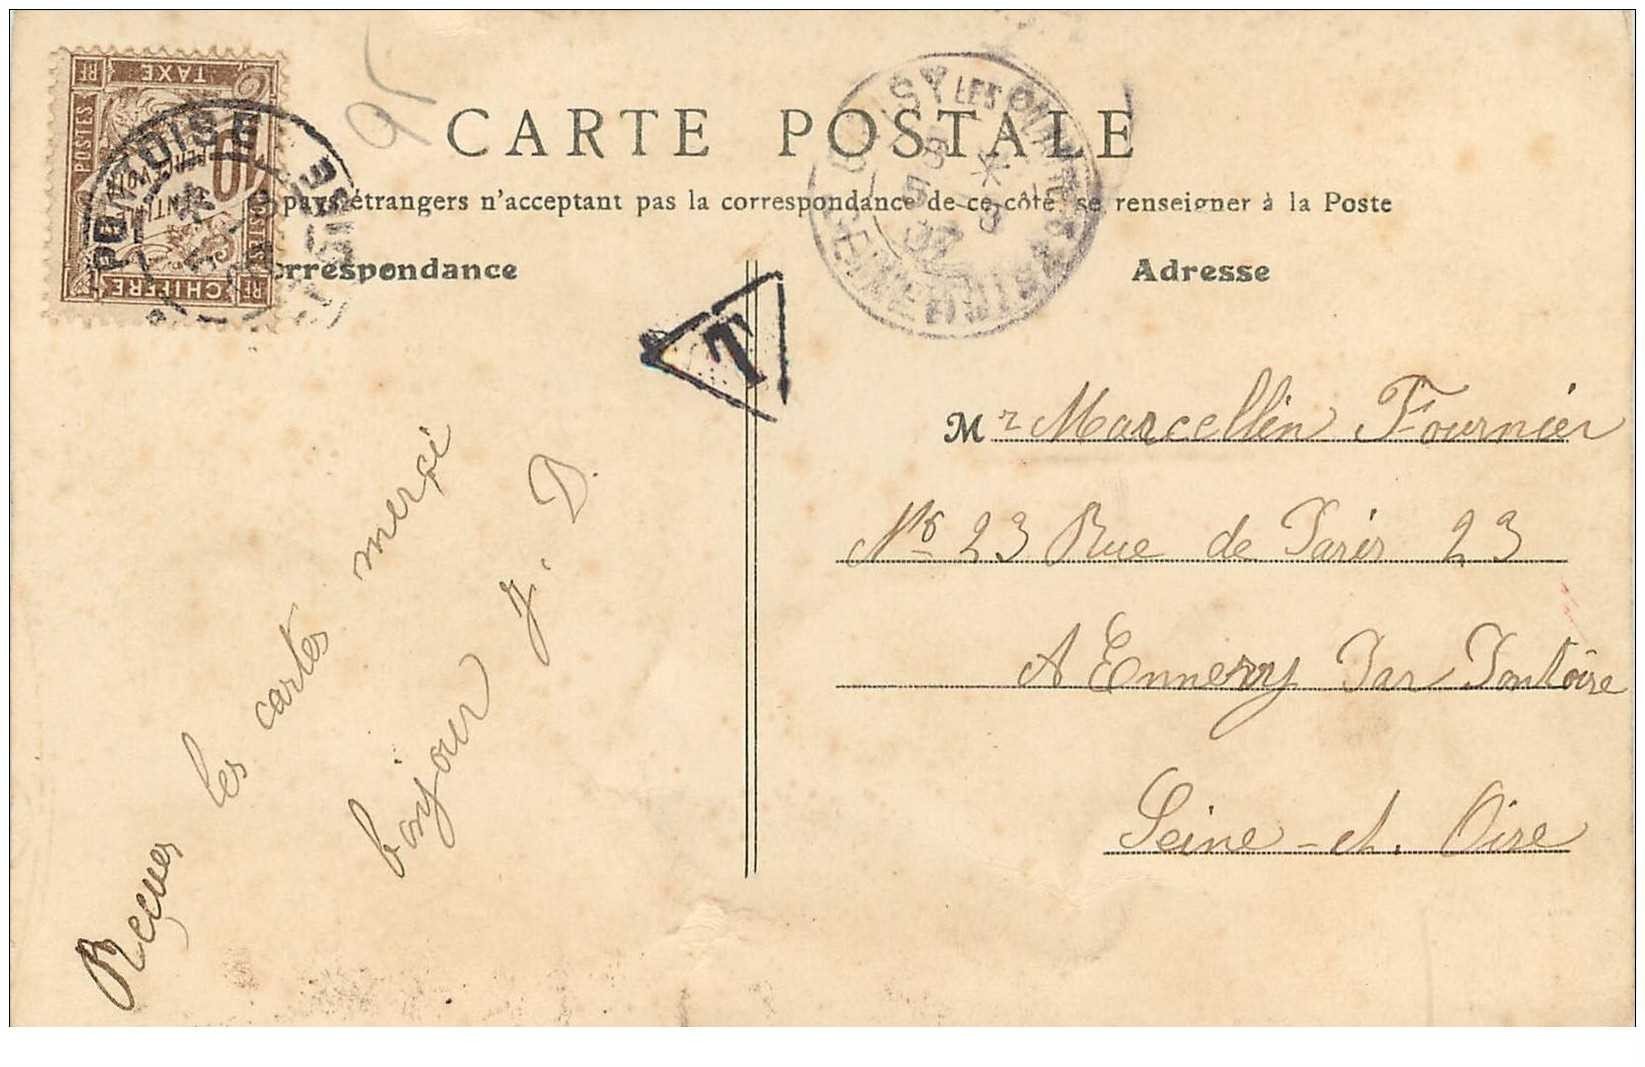 CARTE POSTALE
pays étrangers n'acceptant pas la correspondance de ce côté se renseigner à la Poste
orrespondance
Adresse
TAXE
RF
POSTES
10
CHIFFRE
RF
POSTES
PONTOISE
LES
SEINE
T
95
Reçues les cartes merçi
bonjour J. D.
Mr Marcellin Fournier
No 23 Rue de Paris 23
A Ennery Par Pontoise
Seine-et. Oise